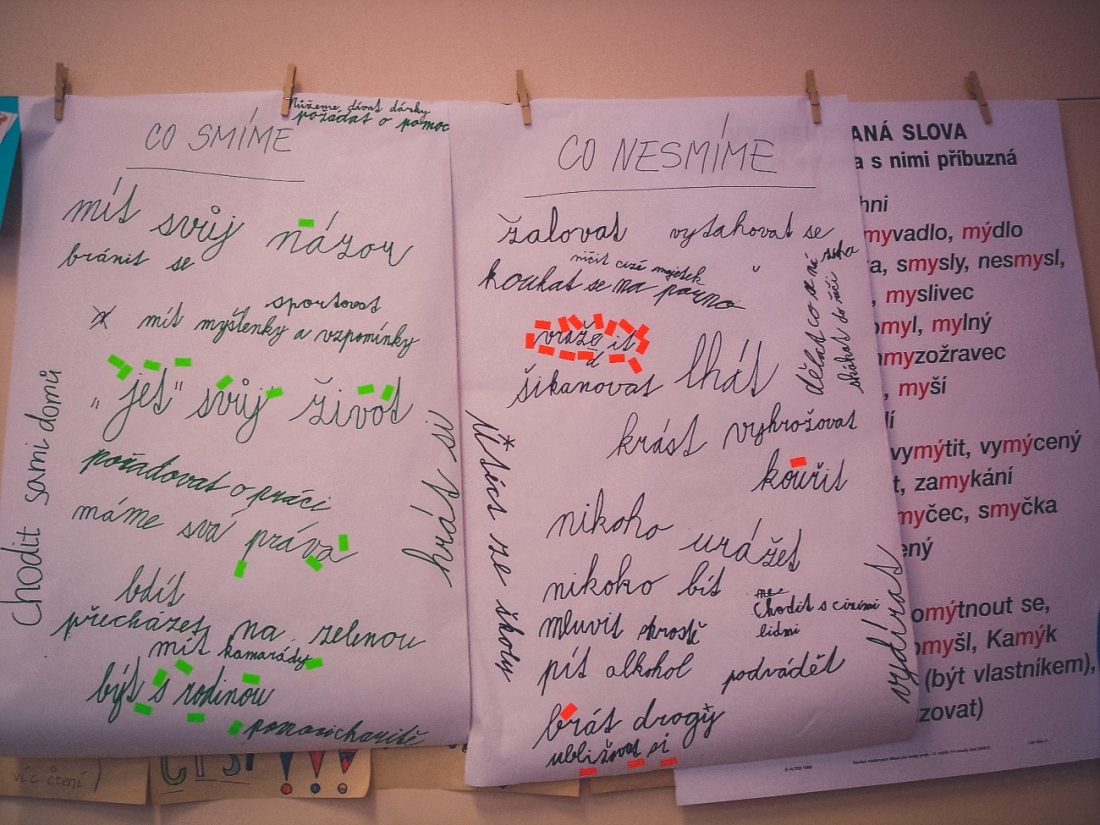 Můžeme dávat dárky
požádat o pomoc
CO SMÍME
mít svůj názor
bránit se
sportovat
mít myšlenky a vzpomínky
„jet" svůj život
Chodit sami domů
požadovat o práci
máme svá práva
hrát si
bdít
přecházet na zelenou
mít kamarády
být s rodinou
pomoci charitě
CO NESMÍME
žalovat vytahovat se
ničit cizí majetek
koukat se na porno
vraždit
šikanovat lhát
dělat co se má
skákat do řeči
krást vyhrožovat
kouřit
Utíct ze školy
nikoho urážet
nikoho bít
chodit s cizími
lidmi
mluvit sprostě
pít alkohol podvádět
vydírat
brát drogy
ubližovat si
ANÁ SLOVA
a s nimi příbuzná
hni
myvadlo, mýdlo
a, smysly, nesmysl,
, myslivec
omyl, mylný
hmyzožravec
, myší
lí
vymýtit, vymýcený
t, zamykání
myčec, smyčka
ený
omýtnout se,
omyšl, Kamýk
(být vlastníkem),
zovat)
víc čtení)
ČTST!!!